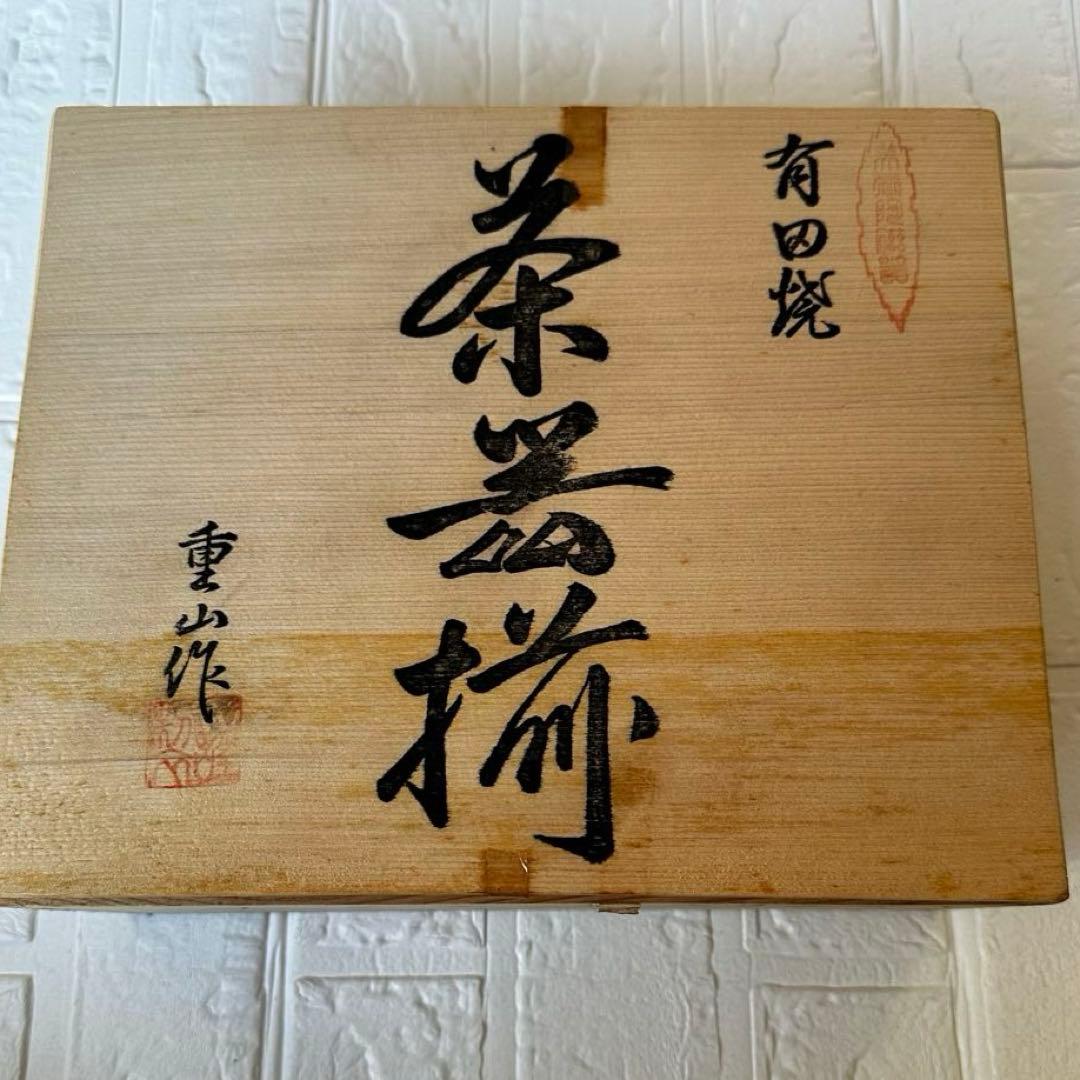 有田焼
茶器揃
重山作